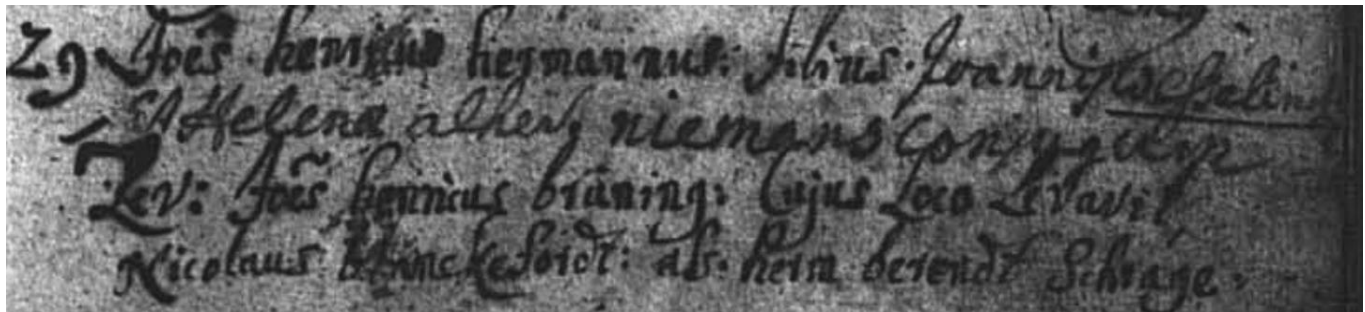 29 Joēs henricus hermannus: filius Joannis wesselinck
Et Helena alheit niemans Conjugum
Lev: Joēs henricus brüning: Cujus Loco Levavit
Nicolaus ad: herm berendt Schrage.